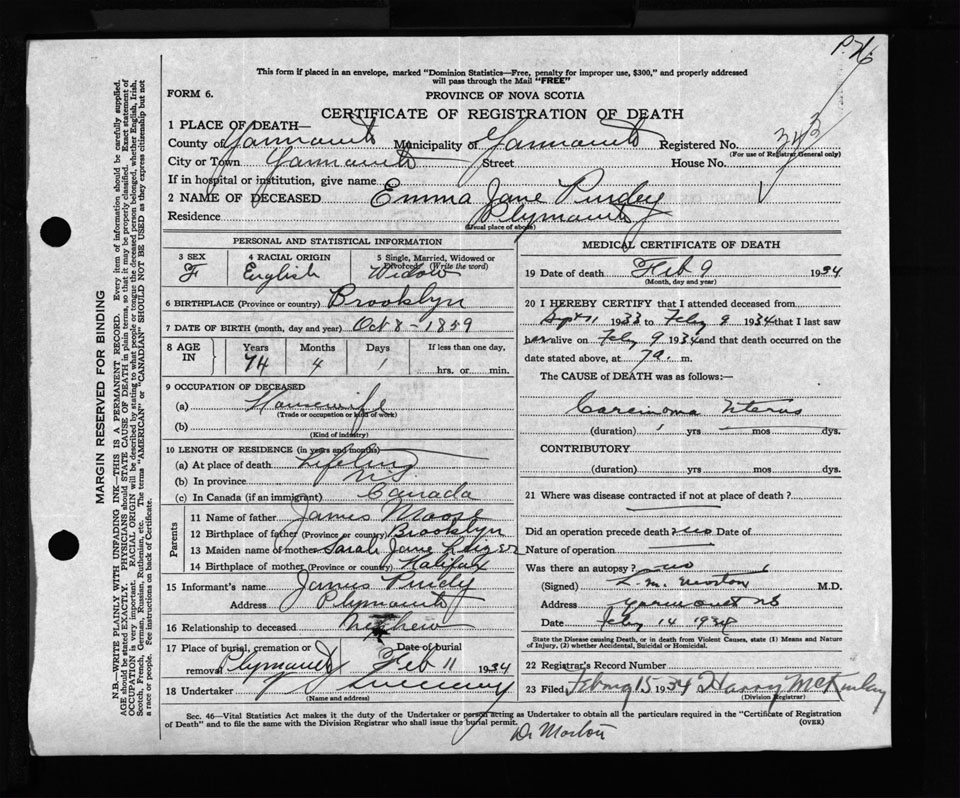 P.H.
This form if placed in an envelope, marked "Dominion Statistics—Free, penalty for improper use, $300," and properly addressed
will pass through the Mail "FREE"
FORM 6.
PROVINCE OF NOVA SCOTIA
CERTIFICATE OF REGISTRATION OF DEATH
1 PLACE OF DEATH—
County of Yarmouth Municipality of Yarmouth Registered No. 343
(For use of Registrar General only)
City or Town Yarmouth Street House No.
If in hospital or institution, give name
2 NAME OF DECEASED Emma Jane Purdey
Residence Plymouth
(Usual place of abode)
PERSONAL AND STATISTICAL INFORMATION
3 SEX F
4 RACIAL ORIGIN English
5 Single, Married, Widowed or Divorced (Write the word) Widow
6 BIRTHPLACE (Province or country) Brooklyn
7 DATE OF BIRTH (month, day and year) Oct 8 - 1859
8 AGE IN Years 74 Months 4 Days 1 If less than one day, hrs. or min.
9 OCCUPATION OF DECEASED
(a) Housewife
(Trade or occupation or kind of work)
(b)
(Kind of industry)
10 LENGTH OF RESIDENCE (in years and months)
(a) At place of death Lifetime
(b) In province NS
(c) In Canada (if an immigrant) Canada
Parents
11 Name of father James Moose
12 Birthplace of father (Province or country) Brooklyn
13 Maiden name of mother Sarah Jane
14 Birthplace of mother (Province or country) Halifax
15 Informant's name James Purdy
Address Plymouth
16 Relationship to deceased Nephew
17 Place of burial, cremation or removal Plymouth Date of burial Feb 11 1934
18 Undertaker
(Name and address)
MEDICAL CERTIFICATE OF DEATH
19 Date of death Feb 9 1934
(Month, day and year)
20 I HEREBY CERTIFY that I attended deceased from
Sept 1 1933 to Feby 9 1934 that I last saw
her alive on Feby 9 1934 and that death occurred on the
date stated above, at 7 a. m.
The CAUSE of DEATH was as follows:—
Carcinoma Uterus
(duration) 1 yrs mos dys.
CONTRIBUTORY
(duration) yrs mos dys.
21 Where was disease contracted if not at place of death?
Did an operation precede death no Date of
Nature of operation
Was there an autopsy? no
(Signed) L. M. Morton M.D.
Address Yarmouth NS
Date Feby 14 1934
State the Disease causing Death, or in death from Violent Causes, state (1) Means and Nature
of Injury, (2) whether Accidental, Suicidal or Homicidal.
22 Registrar's Record Number
23 Filed Febry 15 1934 Harry McKinlay
(Division Registrar)
Sec. 46—Vital Statistics Act makes it the duty of the Undertaker or person acting as Undertaker to obtain all the particulars required in the "Certificate of Registration
of Death" and to file the same with the Division Registrar who shall issue the burial permit. (OVER)
Dr Morton
MARGIN RESERVED FOR BINDING
N.B.—WRITE PLAINLY WITH UNFADING INK—THIS IS A PERMANENT RECORD. Every item of information should be carefully supplied.
AGE should be stated EXACTLY. PHYSICIANS should STATE CAUSE OF DEATH in plain terms, so that it may be properly classified. Exact statement of
OCCUPATION is very important. RACIAL ORIGIN will be described by stating to what people or tongue the deceased person belonged, whether English, Irish,
Scotch, French, German, Russian, Ruthenian, etc. The terms "AMERICAN" or "CANADIAN" SHOULD NOT BE USED as they express citizenship but not
a race or people. See instructions on back of Certificate.